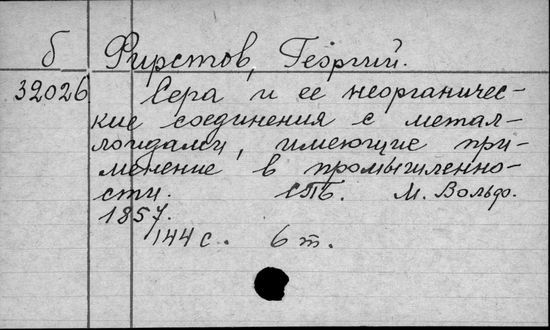 б Фирстов, Георгий.
32026 Сера и ее неорганичес-
кие соединения с метал-
лоидами, имеющие при-
менение в промышленно-
сти. СПб. М. Вольф.
1857.
144 с. 6 т.